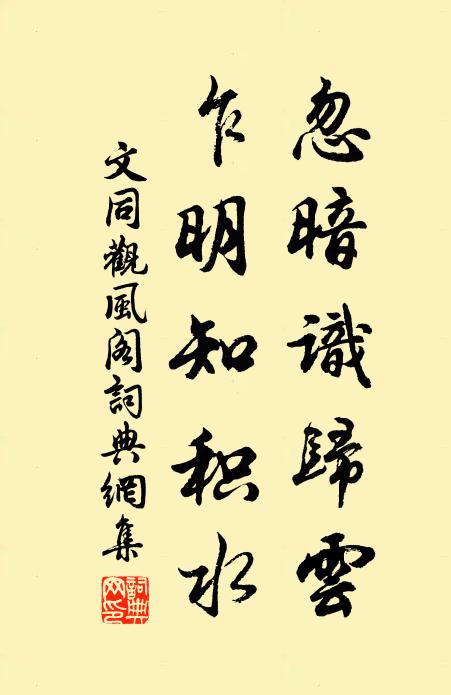 忽暗識歸雲
乍明知积水
文同觀風阁詞典網集
詞典网印